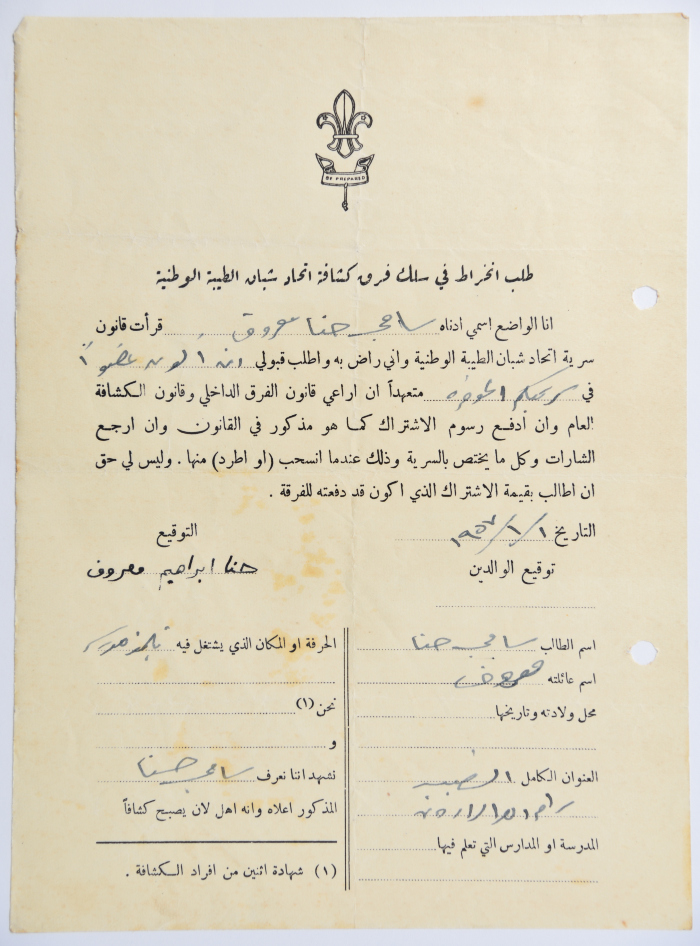 BE PREPARED
طلب انخراط في سلك فرق كشافة اتحاد شبان الطيبة الوطنية
انا الواضع اسمي ادناه سامي حنا معروف قرأت قانون
سرية اتحاد شبان الطيبة الوطنية واني راض به واطلب قبولي ان أكون عضواً
في متعهداً ان اراعي قانون الفرق الداخلي وقانون الكشافة
العام وان أدفع رسوم الاشتراك كما هو مذكور في القانون وان ارجع
الشارات وكل ما يختص بالسرية وذلك عندما انسحب (او اطرد) منها . وليس لي حق
ان اطالب بقيمة الاشتراك الذي اكون قد دفعته للفرقة .
التاريخ ١/١/١٩٥٧
التوقيع
توقيع الوالدين
حنا ابراهيم معروف
اسم الطالب سامي حنا
اسم عائلته معروف
محل ولادته وتاريخها
العنوان الكامل الطيبه
رام الله الاردن
المدرسة او المدارس التي تعلم فيها
الحرفة او المكان الذي يشتغل فيه
نحن (١)
و
نشهد اننا نعرف سامي حنا
المذكور اعلاه وانه اهل لان يصبح كشافاً
(١) شهادة اثنين من افراد الكشافة .